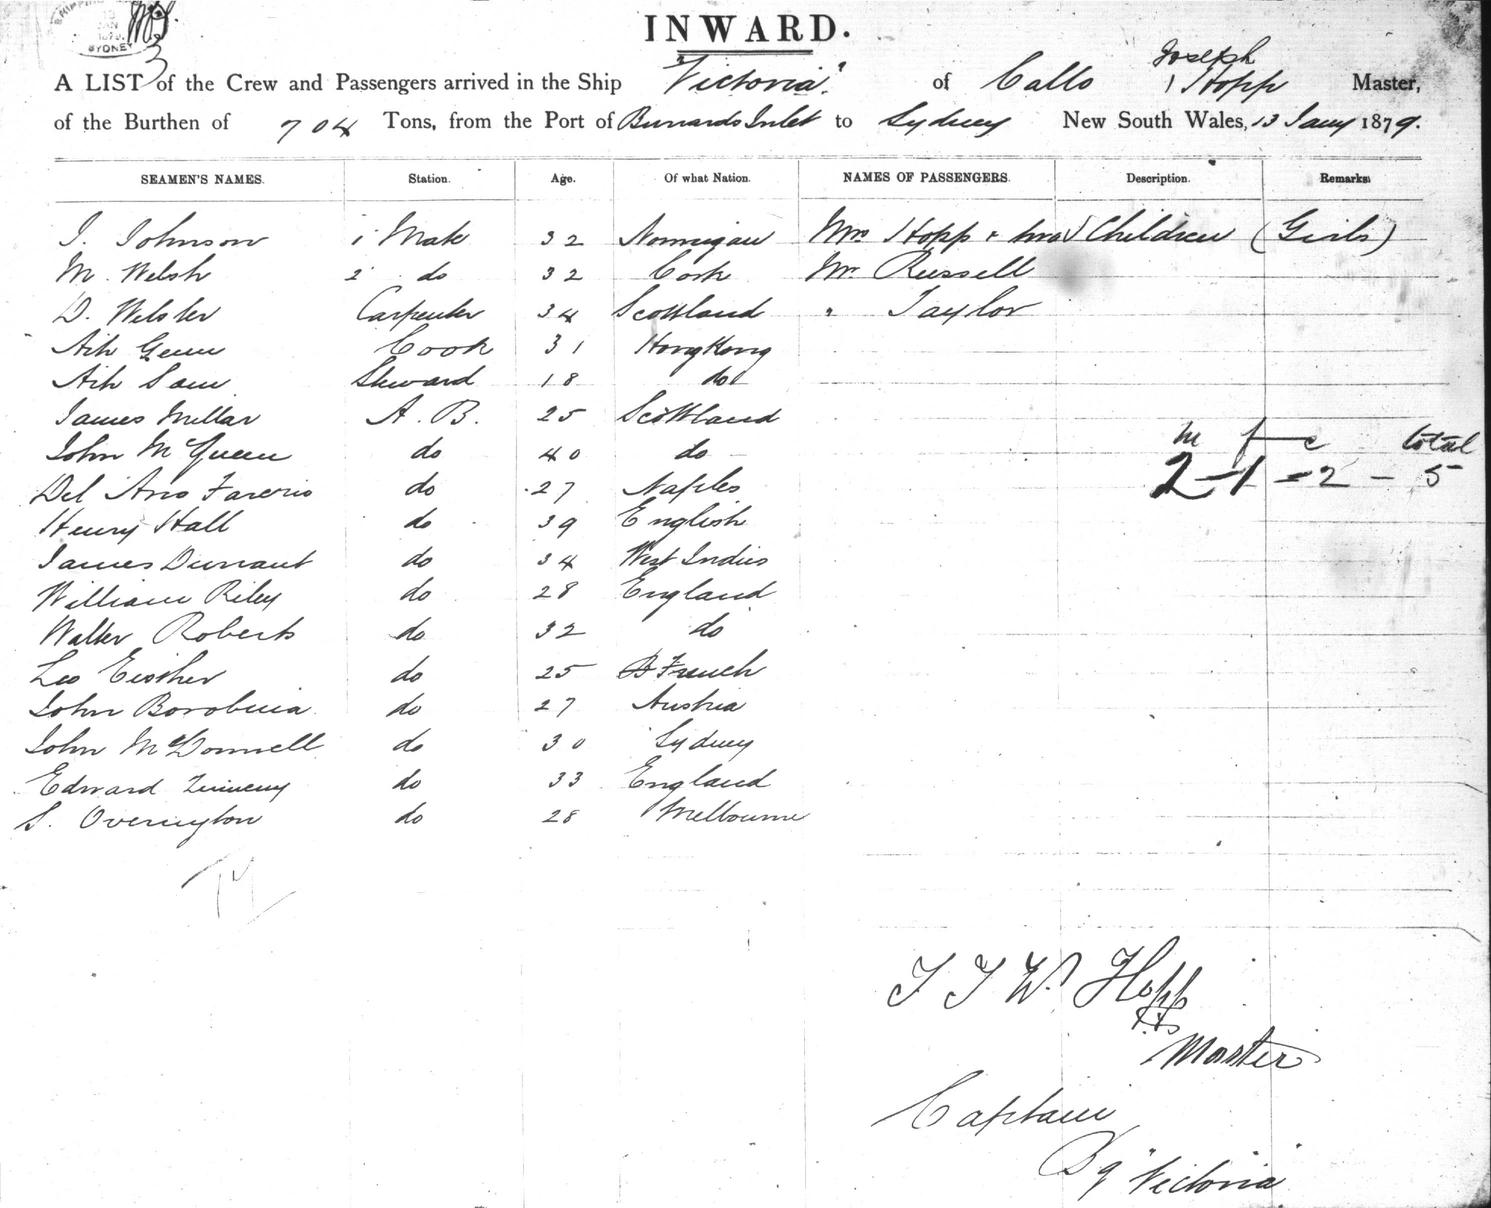 SYDNEY
INWARD.
Joseph
A LIST of the Crew and Passengers arrived in the Ship "Victoria" of Callo J Hopp Master,
of the Burthen of 704 Tons, from the Port of Burrards Inlet to Sydney New South Wales, 13 Jany 1879.
SEAMEN'S NAMES. Station. Age. Of what Nation. NAMES OF PASSENGERS. Description. Remarks.
J. Johnson 1 Mate 32 Norwegian Mrs Hopp & two Children (Girls)
M. Welsh 2 do 32 Cork Mr Russell
D. Webster Carpenter 34 Scottland " Taylor
Aih Cook 31 Hong Kong
Aih Sam Steward 18 do
James Millar A. B. 25 Scottland
m f c total
John McQueen do 40 do
2 - 1 - 2 - 5
Del do 27 Naples
Henry Hall do 39 English
James Durrant do 34 West Indies
William Riley do 28 England
Walter Roberts do 32 do
Leo do 25 French
John do 27 Austria
John McDonnell do 30 Sydney
Edward do 33 England
S. Overington do 28 Melbourne
17
J J W Hopp
Master
Captain
Bq "Victoria"